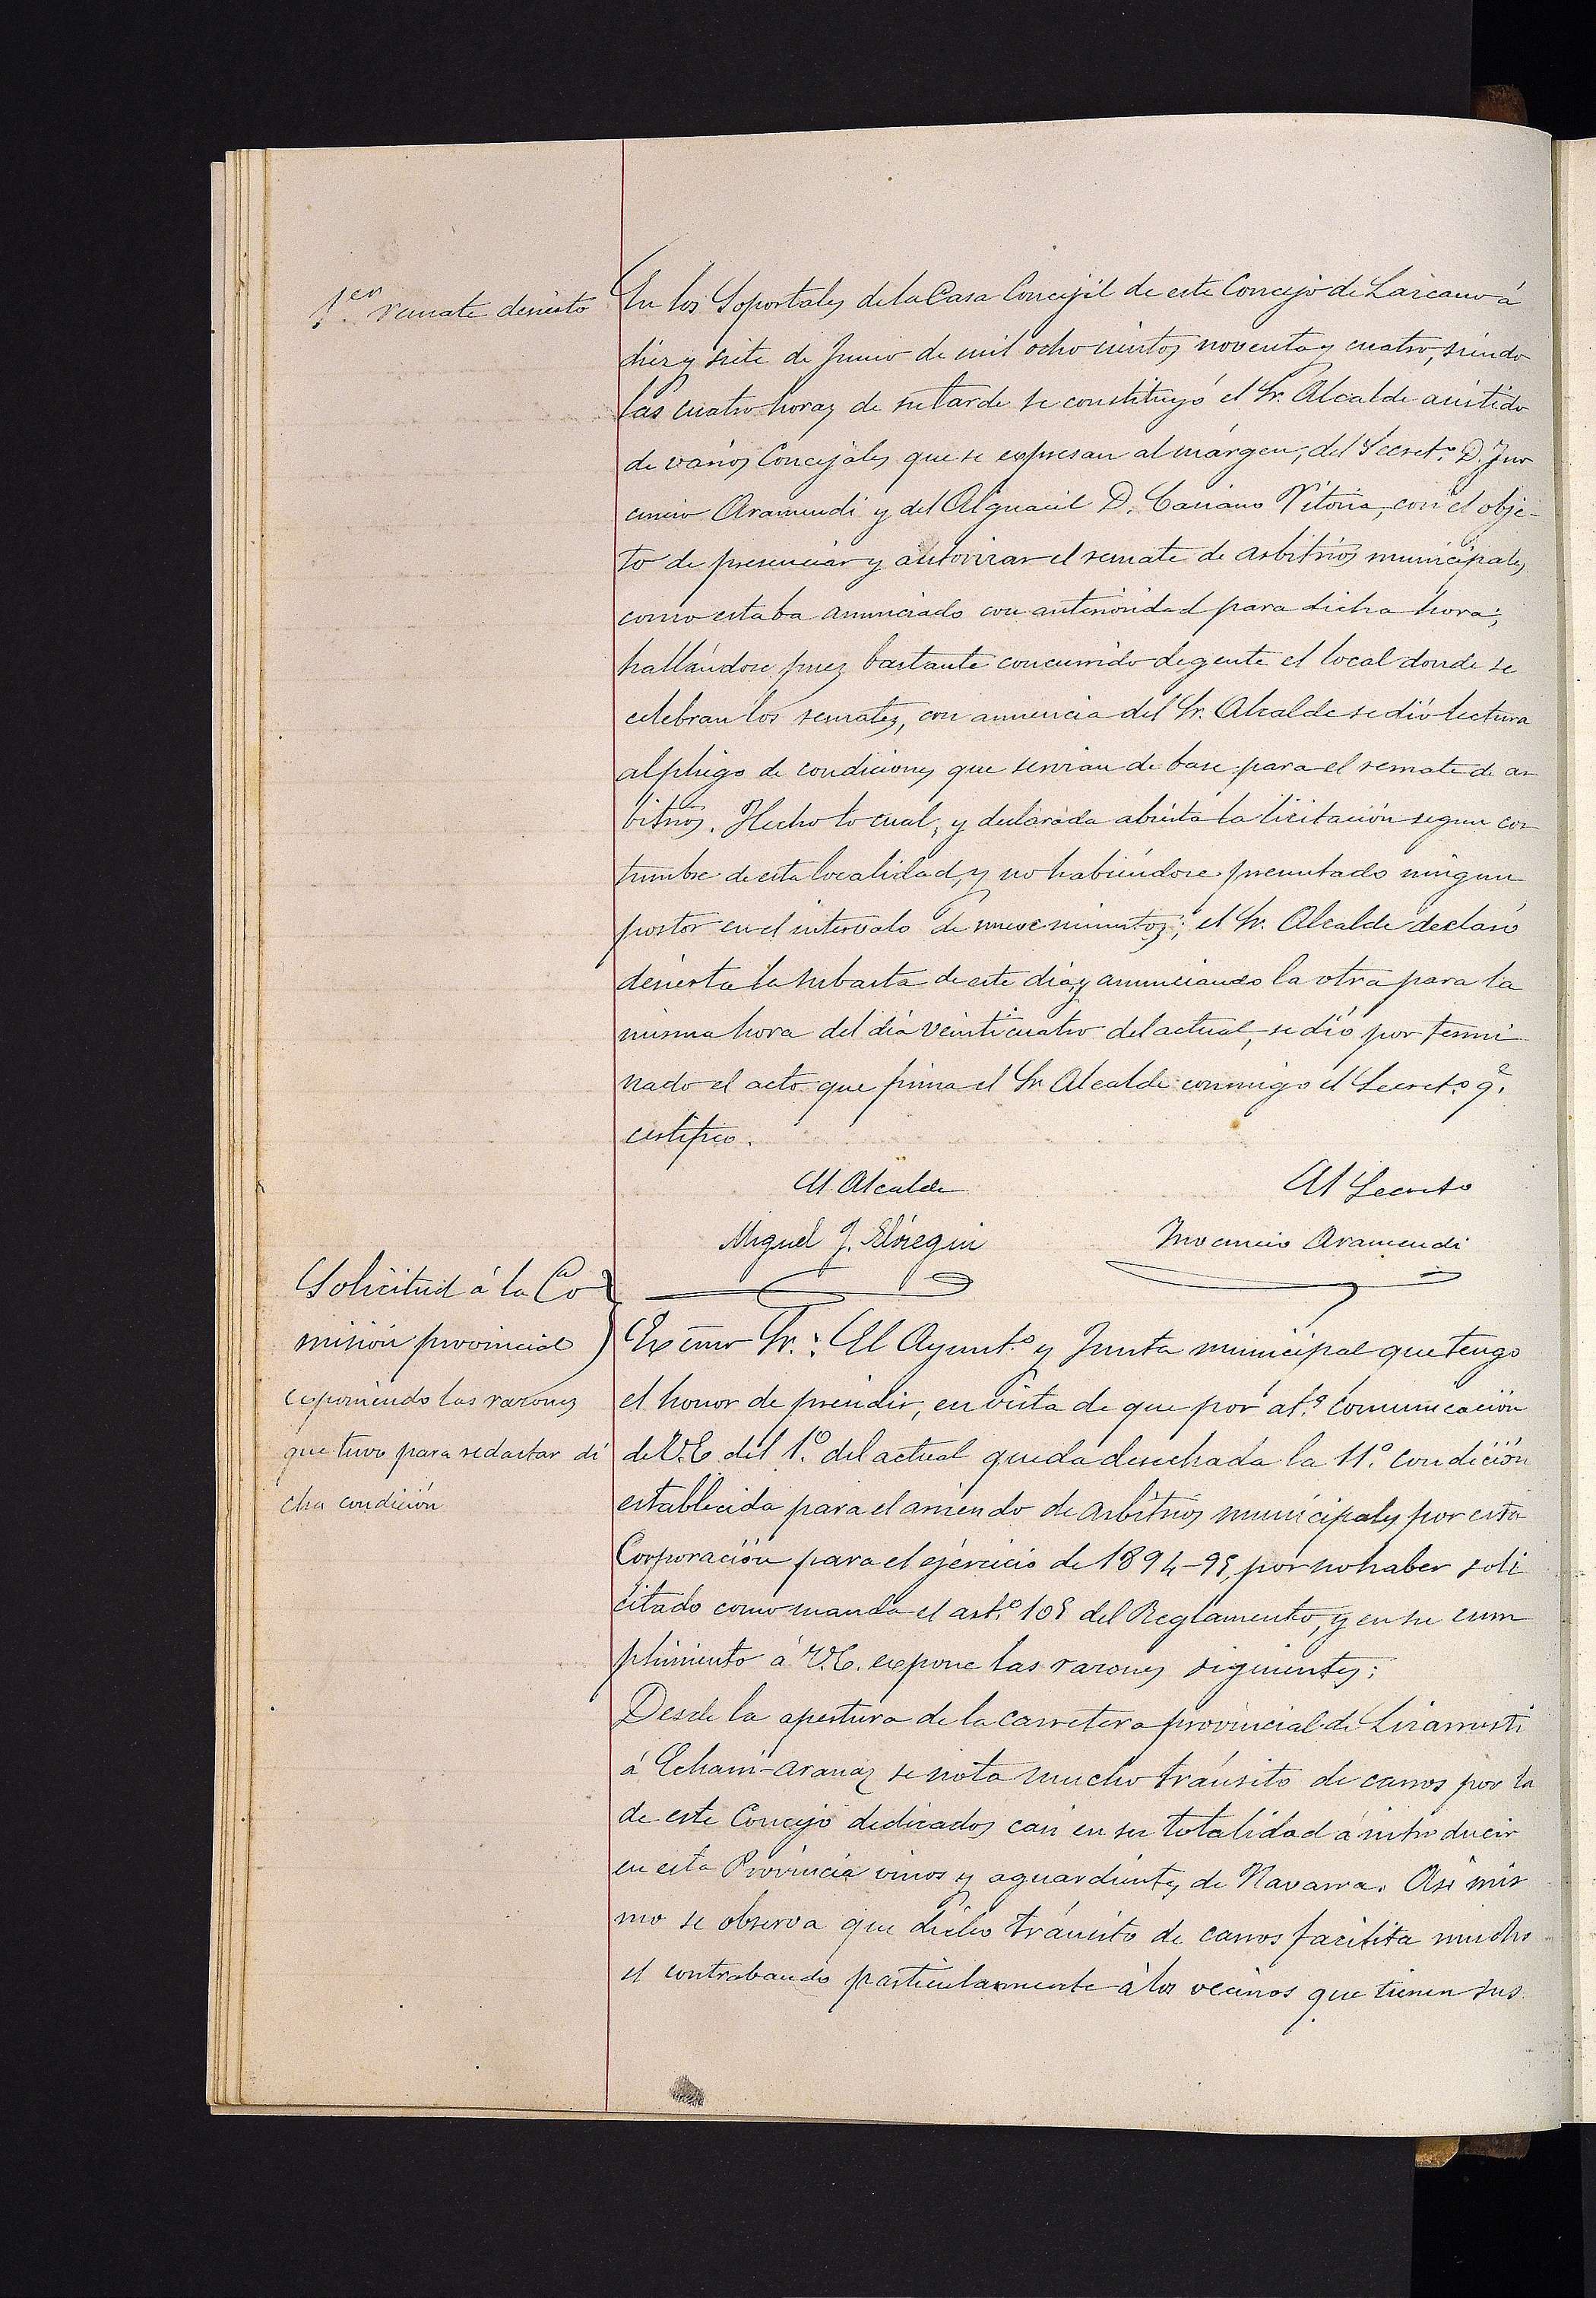 1.er remate desierto
En los Soportales de la Casa Concejil de este Concejo de Lazcano á
diez y siete de Junio de mil ochocientos noventa y cuatro, siendo
las cuatro horas de su tarde se constituyó el Sr. Alcalde asistido
de varios Concejales que se expresan al márgen, del Secret.o D. Ino
cencio Aramendi y del Alguacil D. Casiano Vitoria, con el obje-
to de presenciar y autorizar el remate de arbitrios municipales,
como estaba anunciado con anterioridad para dicha hora;
hallándose pues bastante concurrido de gente el local donde se
celebran los remates, con anuencia del Sr. Alcalde se dió lectura
al pliego de condiciones que servian de base para el remate de ar
bitrios. Hecho lo cual, y declarada abierta la licitación segun cos
tumbre de esta localidad, y no habiéndose presentado ningun
postor en el intervalo de nueve minutos; el Sr. Alcalde declaró
desierta la subasta de este dia, y anunciando la otra para la
misma hora del dia veinticuatro del actual, se dió por termi
nado el acto que firma el Sr. Alcalde conmigo el Secret.o q.e
certifico.
El Alcalde
El Secreto
Miguel J. Elósegui
Inocencio Aramendi
Solicitud á la Co
misión provincial
esponiendo las razones
que tuvo para redactar di
cha condición
Excmo Sr.: El Ayunt.o y Junta municipal que tengo
el honor de presidir, en vista de que por at.a comunicación
de V.E. del 1.o del actual queda desechada la 11.a condición
establecida para el arriendo de arbitrios municipales por esta
Corporación para el ejercicio de 1894-95, por no haber soli
citado como manda el art.o 105 del Reglamento, y en su cum
plimiento á V.E. expone las razones siguientes:
Desde la apertura de la carretera provincial de Lizarrusti
á Echarri-Aranaz se nota mucho tránsito de carros por la
de este Concejo dedicados casi en su totalidad á introducir
en esta Provincia vinos y aguardientes de Navarra. Asi mis
mo se observa que dicho tránsito de carros facilita mucho
el contrabando particularmente á los vecinos que tienen sus